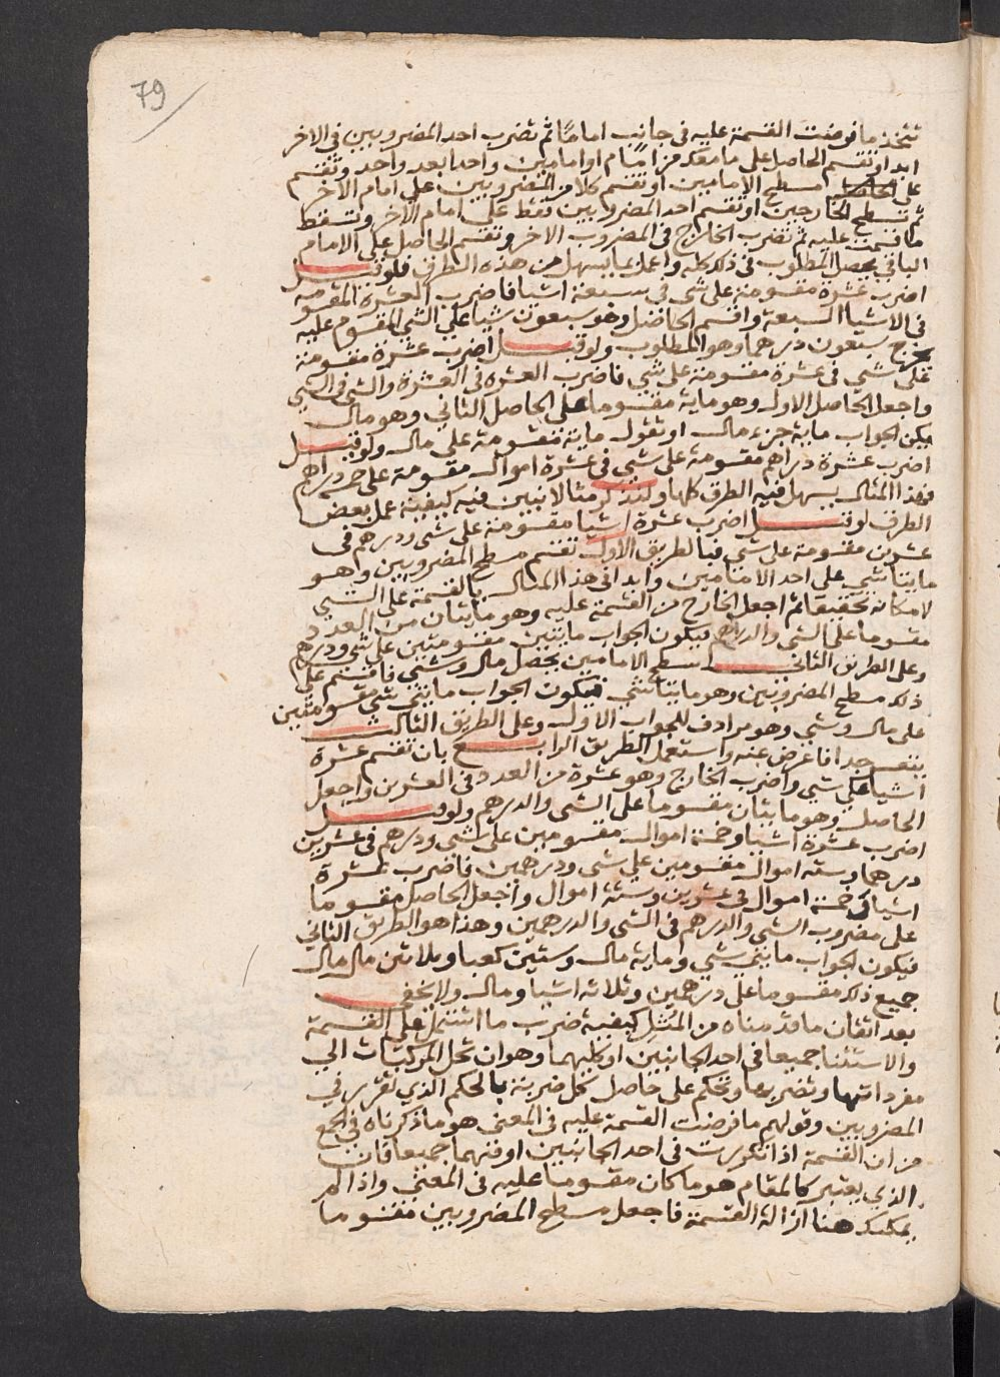 79
تتخذ ما فرضت القسمة عليه فى جانب اماما ثم تضرب احد المضروبين فى الاخر
ابدا وتقسم الحاصل على ما معك من امام او امامين واحدا بعد واحد وتقسم
على مسطح الامامين او تقسم كلا من المضروبين على امام الاخر
ثم تسطح الخارجين او تقسم احد المضروبين فقط على امام الاخر وتسقط
ما قسمت عليه ثم تضرب الخارج فى المضروب الاخر وتقسم الحاصل على الامام
الباقى يحصل المطلوب فى ذلك كله واعمل بما يسهل من هذه الطرق فلو قيل
اضرب عشرة مقسومة على شى فى سبعة اشيا فاضرب العشرة المقسومة
فى الاشيا السبعة واقسم الحاصل وهو سبعون شيا على الشى المقسوم عليه
يخرج سبعون درهما وهو المطلوب ولو قيل اضرب عشرة مقسومة
على شى فى عشرة مقسومة على شى فاضرب العشرة فى العشرة والشى فى الشى
واجعل الحاصل الاول وهو ماية مقسوما على الحاصل الثانى وهو مال
يكن الجواب ماية جزء مال او تقول ماية مقسومة على مال ولو قيل
اضرب عشرة دراهم مقسومة على شى فى عشرة اموال مقسومة على دراهم
فهذا المثال يسهل فيه الطرق كلها ولنذكر مثالا نبين فيه كيفية عمل بعض
الطرق لو قيل اضرب عشرة اشيا مقسومة على شى ودرهم فى
عشرين مقسومة على شى فبالطريق الاول تقسم مسطح المضروبين وهو
مايتا شى على احد الامامين وابدا فى هذا المثال بالقسمة على الشى
لامكانه تحقيقا ثم اجعل الخارج من القسمة عليه وهو مايتان من العدد
مقسوما على الشى والدرهم فيكون الجواب مايتين مقسومتين على شى ودرهم
وعلى الطريق الثانى سطح الامامين يحصل مال وشى فاقسم على
ذلك مسطح المضروبين وهو مايتا شى فيكون الجواب مايتى شى مقسومتين
على مال وشى وهو مرادف للجواب الاول وعلى الطريق الثالث
يتعسر جدا فاعرض عنه واستعمل الطريق الرابع بان تقسم عشرة
اشيا على شى واضرب الخارج وهو عشرة من العدد فى العشرين واجعل
الحاصل وهو مايتان مقسوما على الشى والدرهم ولو قيل
اضرب عشرة اشيا وخمسة اموال مقسومين على شى ودرهم فى عشرين
درهما وستة اموال مقسومين على شى ودرهمين فاضرب عشرة
اشيا وخمسة اموال فى عشرين وستة اموال واجعل الحاصل مقسوما
على مضروب الشى والدرهم فى الشى والدرهمين وهذا هو الطريق الثانى
فيكون الجواب مايتى شى وماية مال وستين كعبا وثلاثين مال مال
جميع ذلك مقسوما على درهمين وثلاثة اشيا ومال ولا يخفى
بعد اتقان ما قدمناه من المثل كيفية ضرب ما اشتمل على القسمة
والاستثنا جميعا فى احد الجانبين او كليهما وهو ان تحل المركبات الى
مفرداتها وتضربها وتحكم على حاصل كل ضربة بالحكم الذى تقرر فى
المضروبين وقولهم ما فرضت القسمة عليه فى المعنى هو ما ذكرناه فى الجمع
من ان القسمة اذا تكررت فى احد الجانبين او فيهما جميعا فان
الذى يعتبر كالمقام هو ما كان مقسوما عليه فى المعنى واذا لم
يمكنك هنا ازالة القسمة فاجعل مسطح المضروبين مقسوما